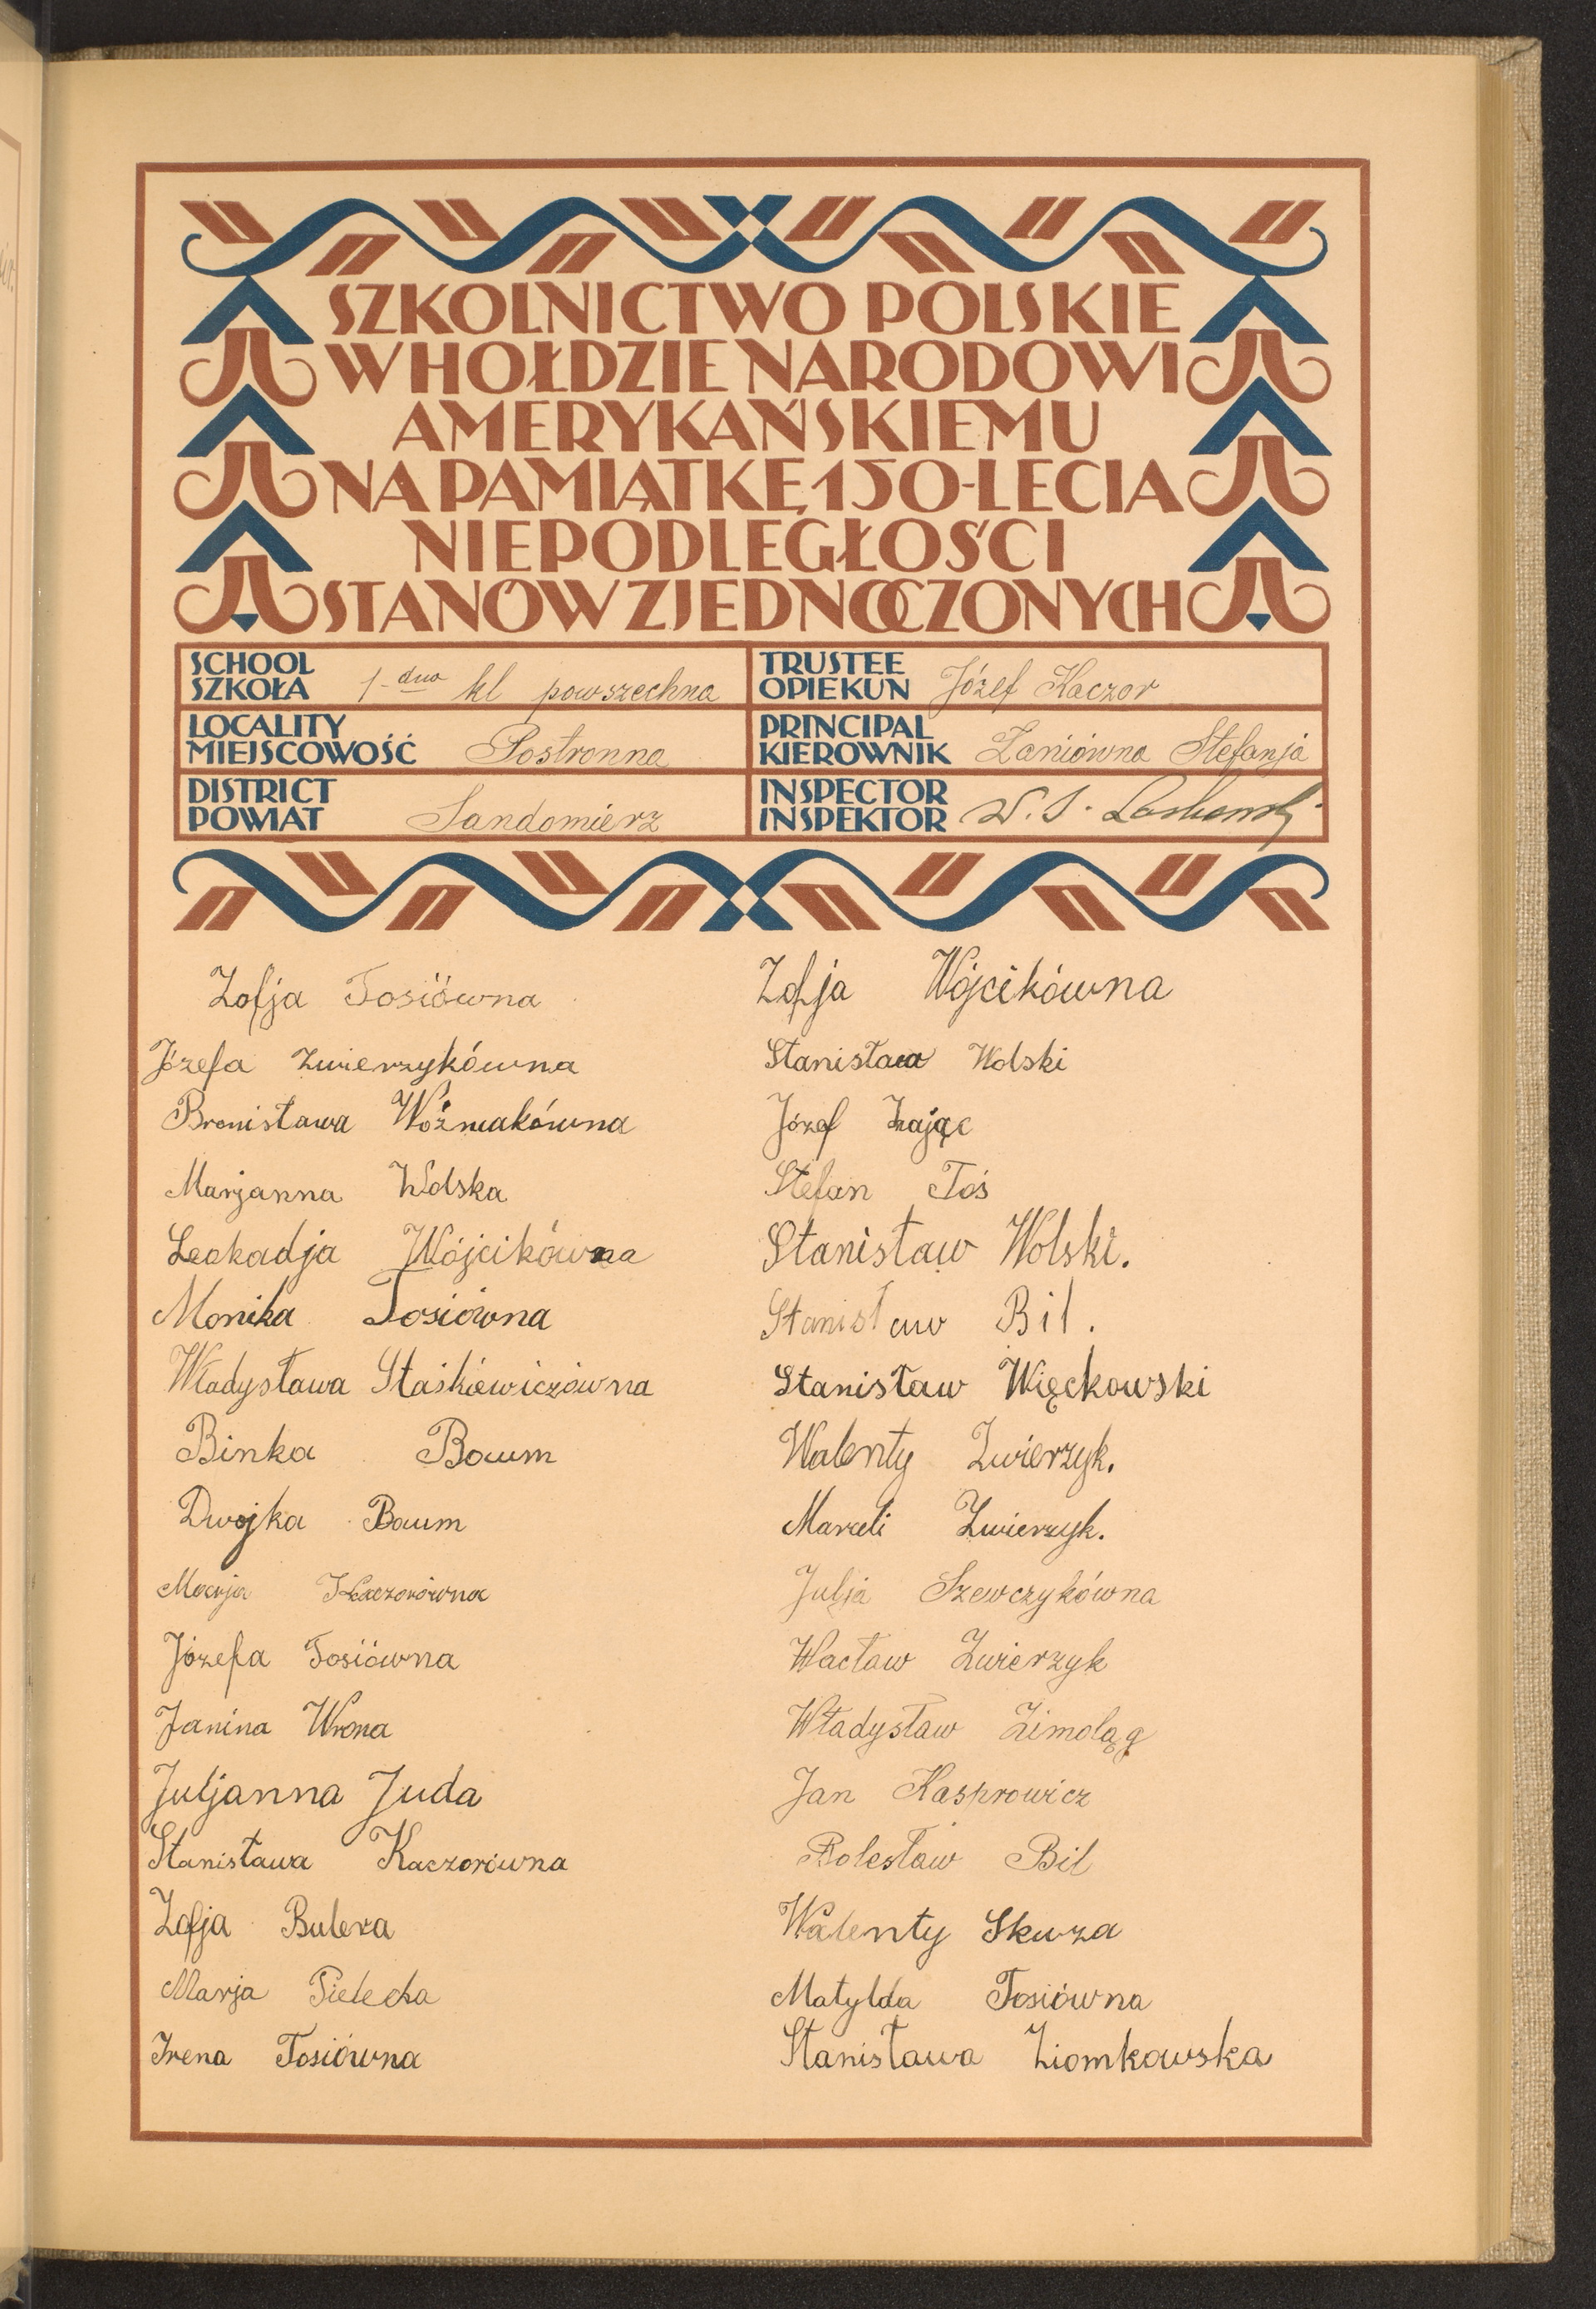 SZKOLNICTWO POLSKIE
W HOŁDZIE NARODOWI
AMERYKAŃSKIEMU
NA PAMIĄTKĘ 150-LECIA
NIEPODLEGŁOŚCI
STANÓW ZJEDNOCZONYCH
SCHOOL
SZKOŁA 1-dno kl powszechna
LOCALITY
MIEJSCOWOŚĆ Postronna
DISTRICT
POWIAT Sandomierz
TRUSTEE
OPIEKUN Józef Kaczor
PRINCIPAL
KIEROWNIK Zaniówna Stefanja
INSPECTOR
INSPEKTOR
Zofja Tosiówna
Józefa Zwierzykówna
Bronisława Woźniakówna
Marjanna Wolska
Leokadja Wójcikówna
Monika Tosiówna
Władysława Staśkiewiczówna
Binka Baum
Dwojka Baum
Marja Kaczorówna
Józefa Tosiówna
Janina Wrona
Juljanna Juda
Stanisława Kaczorówna
Zofja Bulera
Marja Pielecka
Irena Tosiówna
Zofja Wójcikówna
Stanisława Wolski
Józef Zając
Stefan Toś
Stanisław Wolski.
Stanisław Bil.
Stanisław Więckowski
Walenty Zwierzyk.
Marceli Zwierzyk.
Julja Szewczykówna
Wacław Zwierzyk
Władysław Zimoląg
Jan Kasprowicz
Bolesław Bil
Walenty Skuza
Matylda Tosiówna
Stanisława Ziomkowska